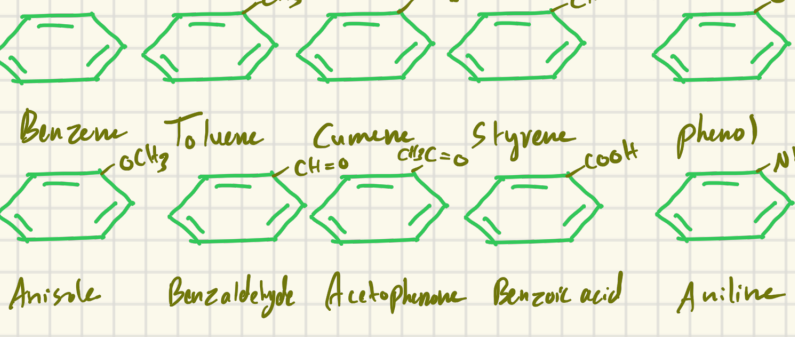 Benzene Toluene Cumene Styrene phenol
OCH3 CH=O CH3C=O COOH
Anisole Benzaldehyde Acetophenone Benzoic acid Aniline